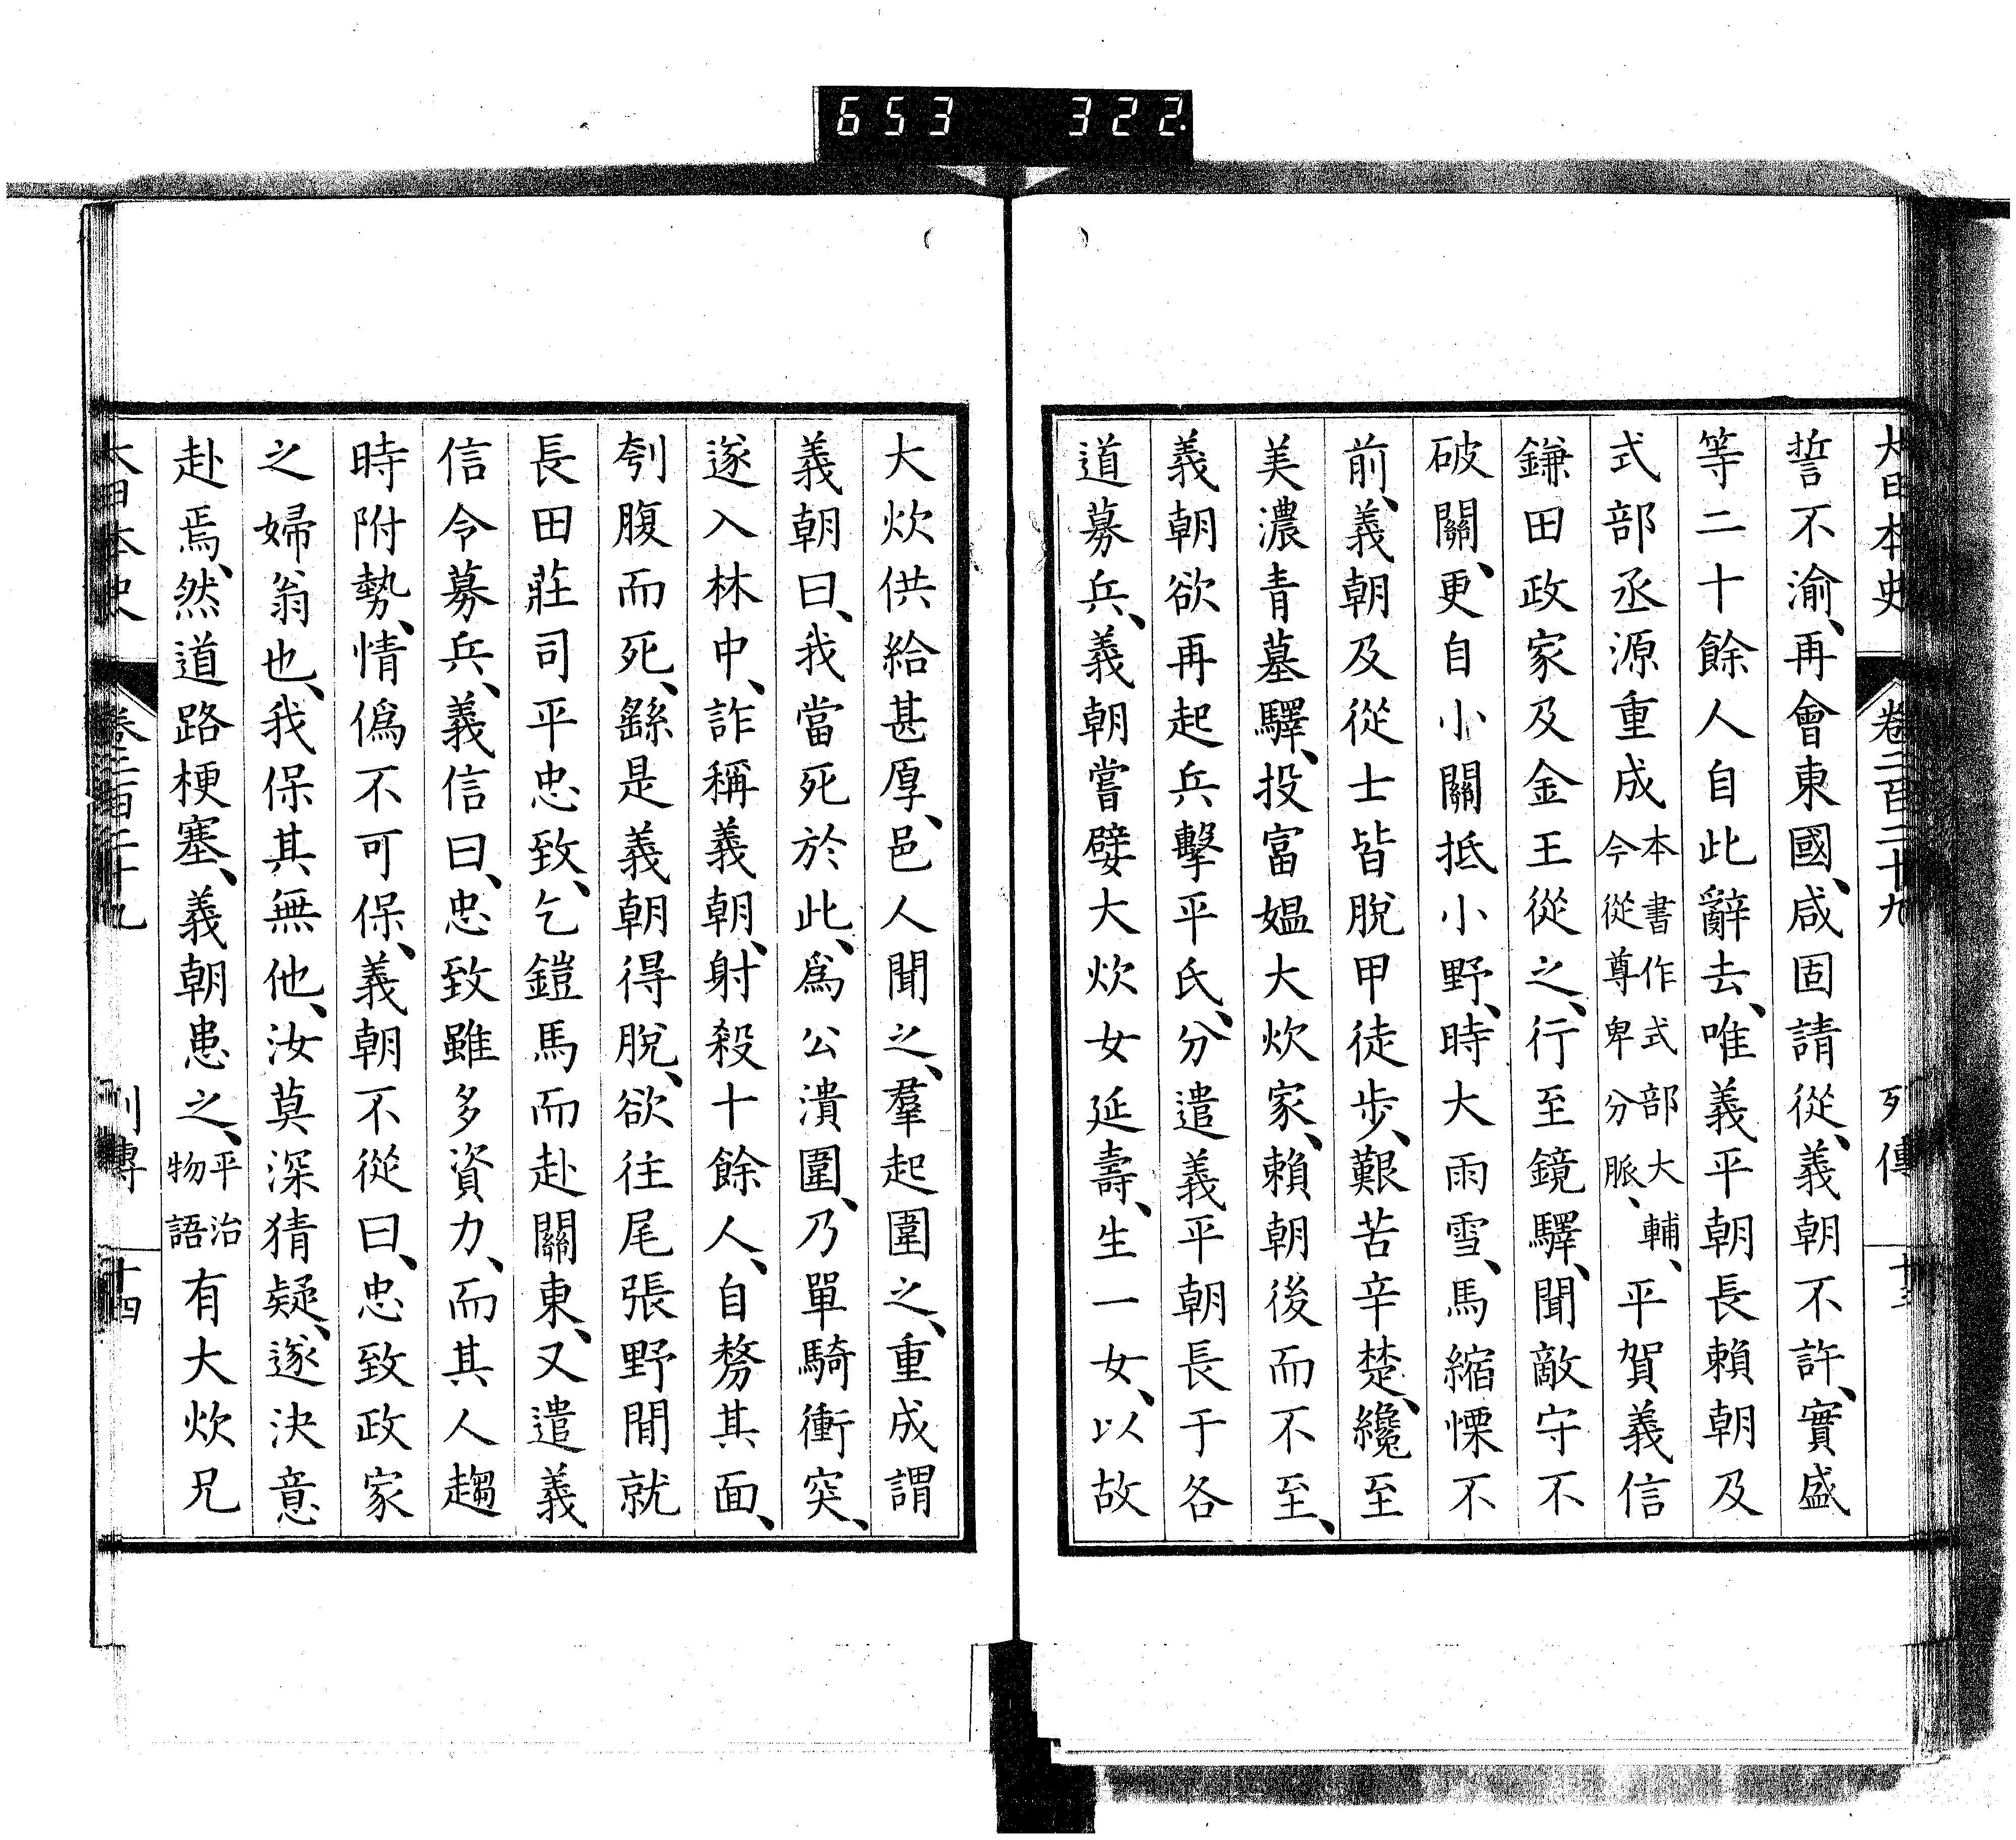 653 322
大日本史 卷二百二十九 列傳
誓不渝、再會東國、咸固請從、義朝不許、實盛
等二十餘人自此辭去、唯義平朝長賴朝及
式部丞源重成本書作式部大輔、今從尊卑分脈、平賀義信
鎌田政家及金王從之、行至鏡驛、聞敵守不
破關、更自小關抵小野、時大雨雪、馬縮慄不
前、義朝及從士皆脫甲徒步、艱苦辛楚、纔至
美濃青墓驛、投富媼大炊家、賴朝後而不至、
義朝欲再起兵擊平氏、分遣義平朝長于各
道募兵、義朝嘗嬖大炊女延壽、生一女、以故
大炊供給甚厚、邑人聞之、羣起圍之、重成謂
義朝曰、我當死於此、爲公潰圍、乃單騎衝突、
遂入林中、詐稱義朝、射殺十餘人、自剺其面、
刳腹而死、繇是義朝得脫、欲往尾張野間就
長田莊司平忠致、乞鎧馬而赴關東、又遣義
信令募兵、義信曰、忠致雖多資力、而其人趨
時附勢、情僞不可保、義朝不從曰、忠致政家
之婦翁也、我保其無他、汝莫深猜疑、遂決意
赴焉、然道路梗塞、義朝患之、平治物語有大炊兄
大日本史 卷二百二十九 列傳 十四